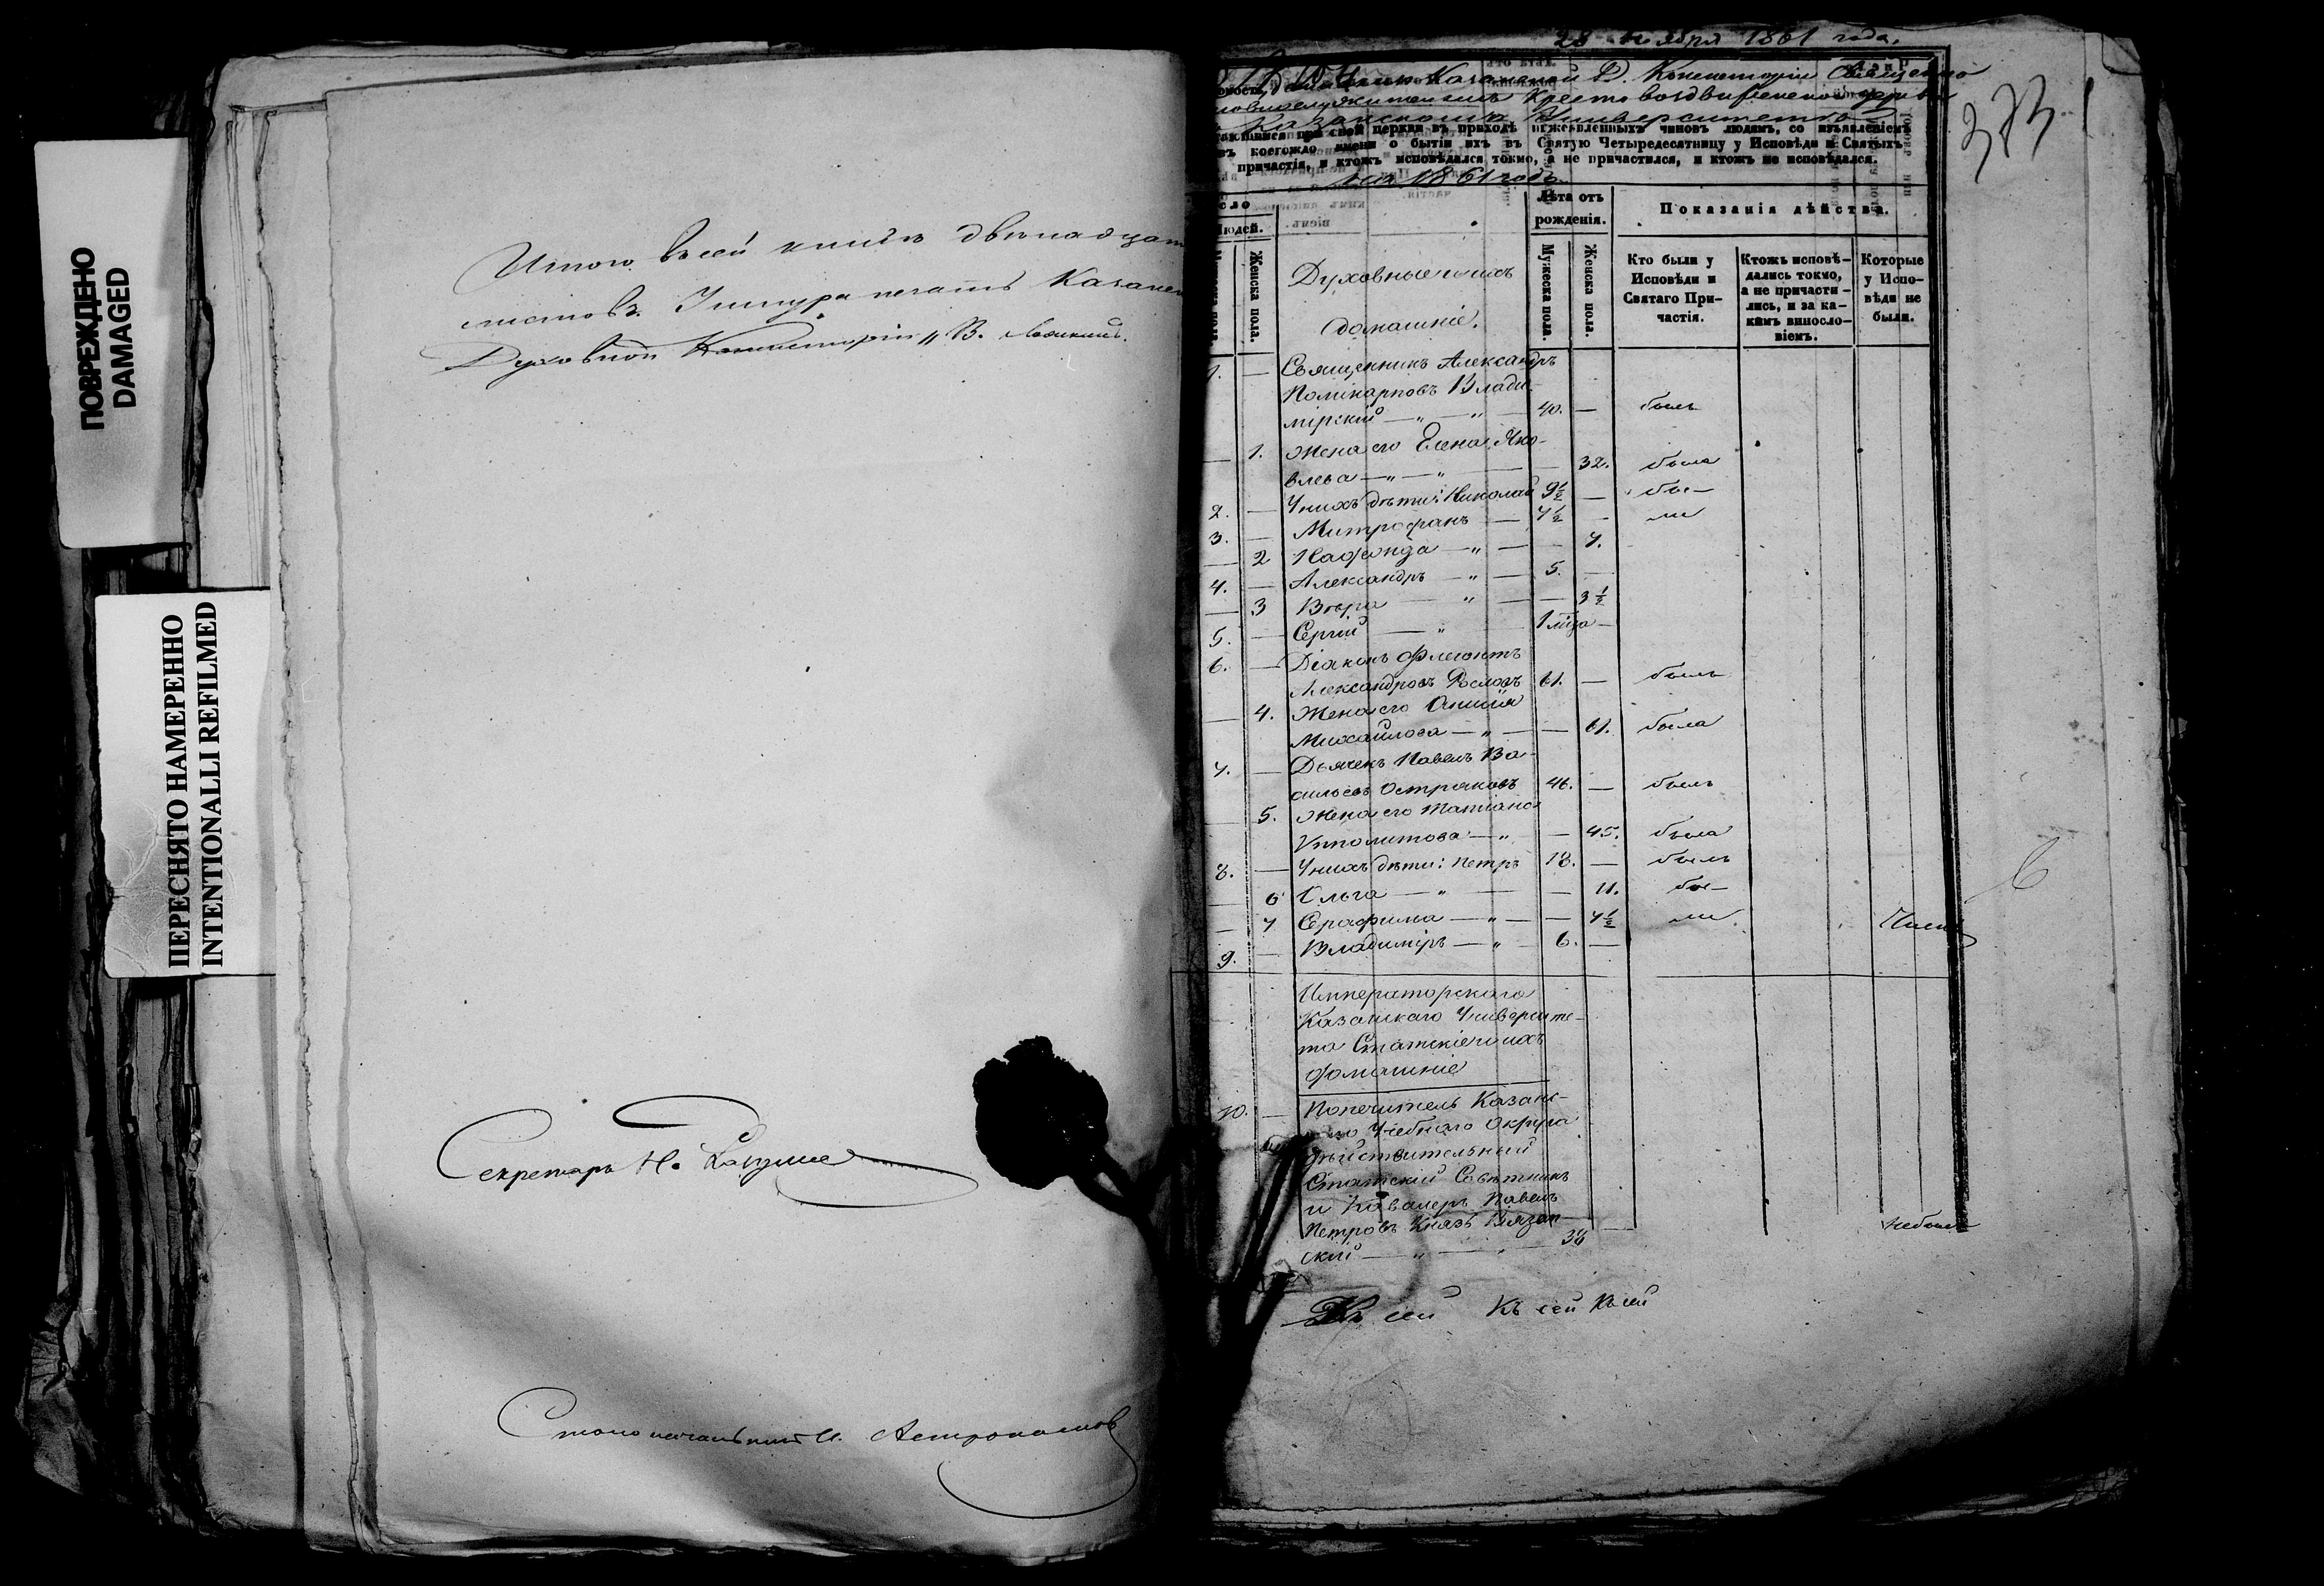 ПОВРЕЖДЕНО
DAMAGED
ПЕРЕСНЯТО НАМЕРЕННО
INTENTIONALLI REFILMED
Итого въ сей книгѣ двѣнадцат
листовъ. У шнура печать Казанск
Духовной Консисторіи
Секретарь Н.
Столоначальникъ И.
28 ноября 1861 года.
373
Казанской Д. Консисторіи Священно
Крестовоздвиженской церкви
Казанскомъ Университетѣ
при сей церкви въ приходѣ нижеявленныхъ чиновъ людямъ, со изъявленіемъ
въ коегождо имени о бытіи ихъ въ Святую Четыредесятницу у Исповѣди и Святыхъ
причастія, и ктожъ исповѣдался токмо, а не причастился, и ктожъ не исповѣдался.
за 1861 годъ.
сло
Людей.
Женска пола.
Духовные и ихъ
домашніе.
Лѣта отъ
рожденія.
Мужеска пола.
Женска пола.
Показанія дѣйства.
Кто были у
Исповѣди и
Святаго При-
частія.
Ктожъ исповѣ-
дались токмо,
а не причасти-
лись, и за ка-
кимъ винсло-
віемъ.
Которые
у Испо-
вѣди не
были.
1. — Священникъ Александръ
Поликарповъ Влади-
мірскій — „ — „ — 40. — былъ
— 1. Жена его Елена Яко-
влева — „ — „ — 32. была
2. — У нихъ дѣти: Николай 9½ — бы-
3. — Митрофанъ — 7½ - ли
— 2 — „ — — 7.
4. — Александръ — „ — 5. —
— 3 Вѣра — „ — — 3½
5. — Сергій — „ 1 мѣца —
6. — Діаконъ Флегонтъ
Александровъ Рословъ 61. — былъ
— 4. Жена его
Михайлова — „ — — 61. была
7. — Дьячекъ Павелъ Ва-
сильевъ Остряковъ 46. — былъ
— 5. Жена его Татіана
Ипполитова — „ — 45. была
8. — У нихъ дѣти: Петръ 18. — былъ
— 6 Ольга — „ — — 11. бы-
— 7 Серафима — „ — — 7½ ли
9. — Владиміръ — „ — 6. —
6
Императорскаго
Казанскаго Университе-
та Статскіе и ихъ
домашніе
10. — Попечитель Казанс-
ко Учебнаго Округа
Дѣйствительный
Статскій Совѣтникъ
и Кавалеръ Павелъ
Петровъ Князь Вязем-
скій — „ — „ — 38 — не былъ
Къ сей Къ сей Къ сей